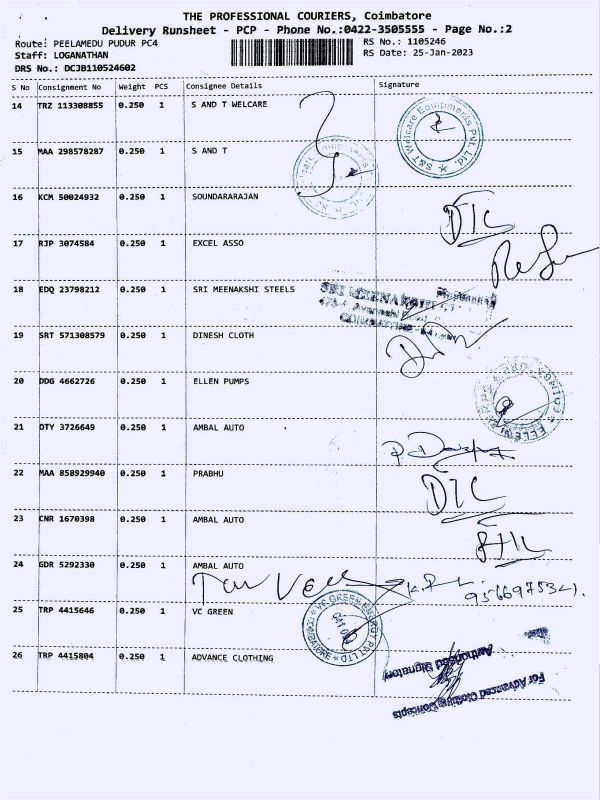 THE PROFESSIONAL COURIERS, Coimbatore
Delivery Runsheet - PCP - Phone No.:0422-3505555 - Page No.:2
Route: PEELAMEDU PUDUR PC4 RS No.: 1105246
Staff: LOGANATHAN RS Date: 25-Jan-2023
DRS No.: DCJB110524602
S No Consignment No Weight PCS Consignee Details Signature
14 TRZ 113308855 0.250 1 S AND T WELCARE
S&T Welcare Equipments Pvt. Ltd.
15 MAA 298578287 0.250 1 S AND T
16 KCM 50024932 0.250 1 SOUNDARARAJAN
17 RJP 3074584 0.250 1 EXCEL ASSO
18 EDQ 23798212 0.250 1 SRI MEENAKSHI STEELS
19 SRT 571308579 0.250 1 DINESH CLOTH
20 DDG 4662726 0.250 1 ELLEN PUMPS
21 DTY 3726649 0.250 1 AMBAL AUTO
22 MAA 858929940 0.250 1 PRABHU
23 CNR 1670398 0.250 1 AMBAL AUTO
24 GDR 5292330 0.250 1 AMBAL AUTO
25 TRP 4415646 0.250 1 VC GREEN
VC GREEN ENERGY PVT LTD
26 TRP 4415804 0.250 1 ADVANCE CLOTHING
Authorized Signatory
For Advanced Clothing Concepts